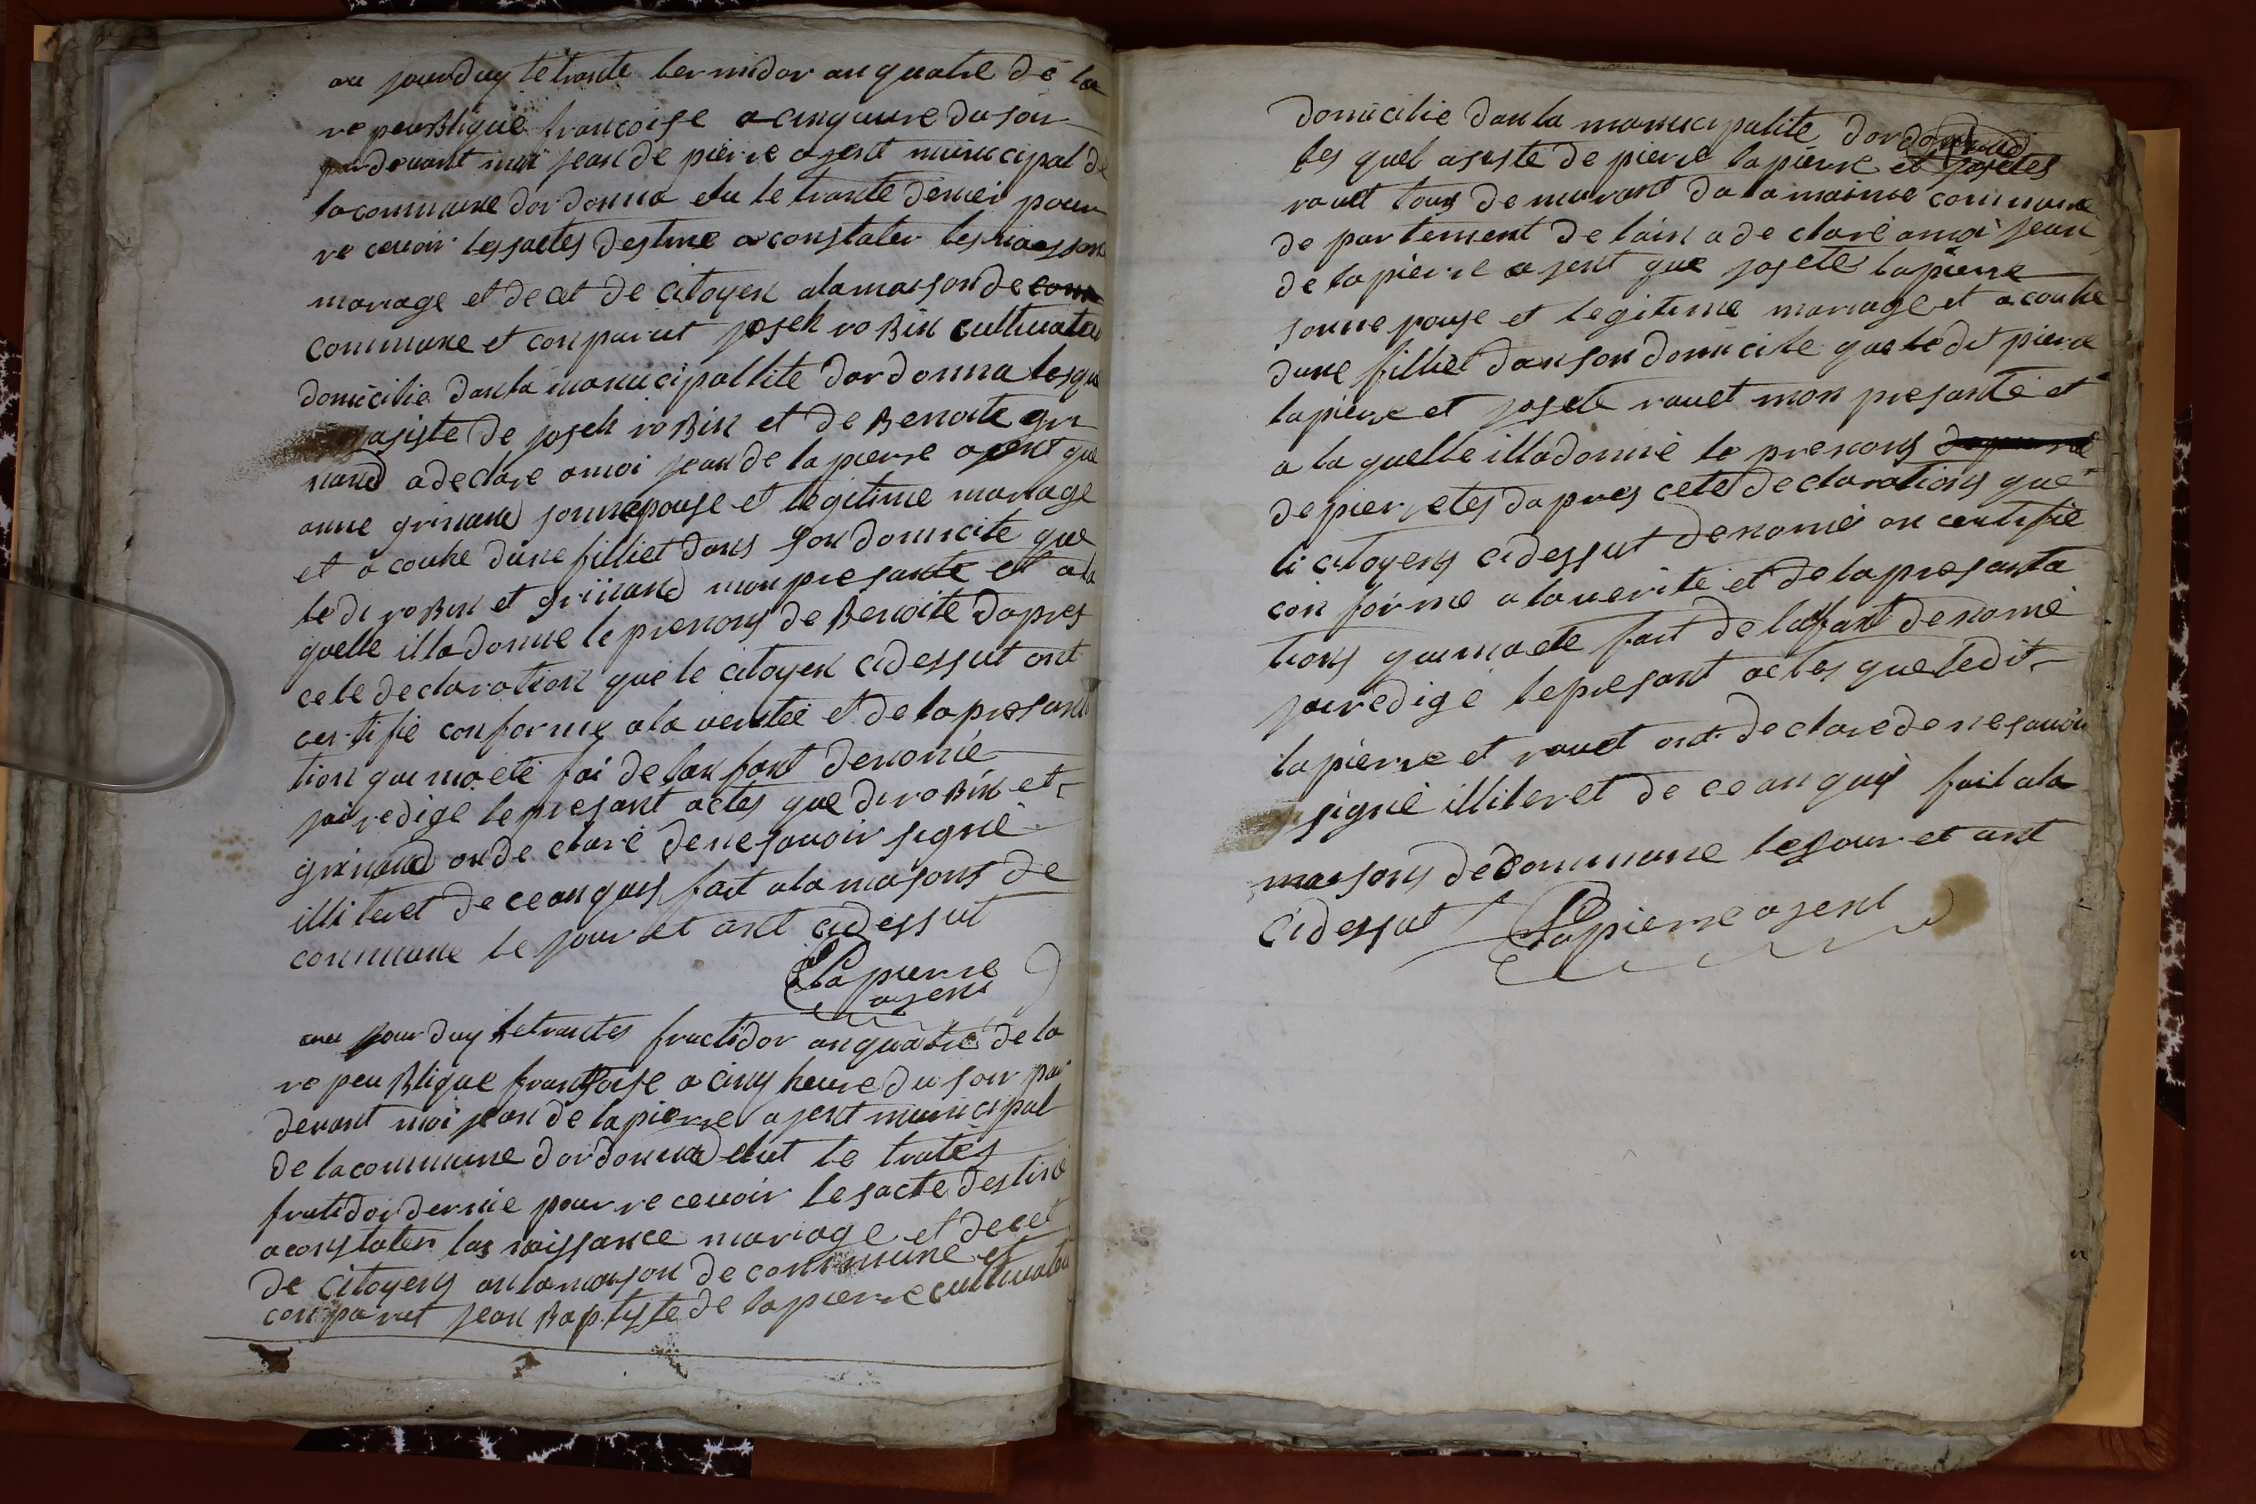 au jourduy le trante termidor an quatre de la
re peublique francoise a cinq eure du soir
par devant moi jean de pierre agent municipal de
la commune dordonna elu le trante dernier pour
re cevoir les actes destine a constater les naissans
mariage et decet de citoyen a la maison de com
commune et conparut joseh roBin cultivateu
domicilie dans la manucipallite dordonna lesque
asiste de joseh roBin et de Benoite gri
nand a declare a moi jean de la pierre agent que
anne grinand sonnepouse et legitime mariage
et a couhe dune filliet dans son domicile que
le di roBin et grinand mon presante et a la
quelle il la donne le prenons de Benoite dapres
cete declaration que le citoyen cidessut ont
certifie conforme a la veritee et de la presanta
tion qui ma ete fai de lanfant denomé
jai redige le presant actes que di roBin et
grinand on de claré de ne savoir signé
illiteret de ce anquis fait a la maisons de
commune le jour et ant cidessut
Lapierre
agent
au jourduy le trantes fructidor an quatre de la
re peu Blique francoise a cinq heure du soir par
devant moi jean de lapierre agent municipal
de la commune dordonna elut le trantes
frutidor dernie pour re cevoir les acte destine
a constater las naissance mariage et decet
de citoyens an la maison de commune et
conparut jean Baptiste de lapierre cultivateu
domicilie dan la manucipalite dordonnad
les quel asiste de pierre lapierre et josetes
ravet tous demurant da la mainme commune
de partement de lain a de claré a moi jean
de lapierre agent que josete lapierre
sonne pouse et legitime mariage et a couhe
dune filliet dan son domicile que le dit pierre
lapierre et josete ravet mon presanté et
a la quelle il la donné le prenons
de pier etes dapres cete declarations que
li citoyens cidessut denomé on certifié
con forme a la verite et de la presanta
tions qui ma ete fait de lanfant denomé
jai redigé le presant actes que le dit
lapierre et ravet ont de claré de ne savoir
signé illiteret de ce anquis fait a la
maisons de commune le jour et ant
cidessut Lapierre agent